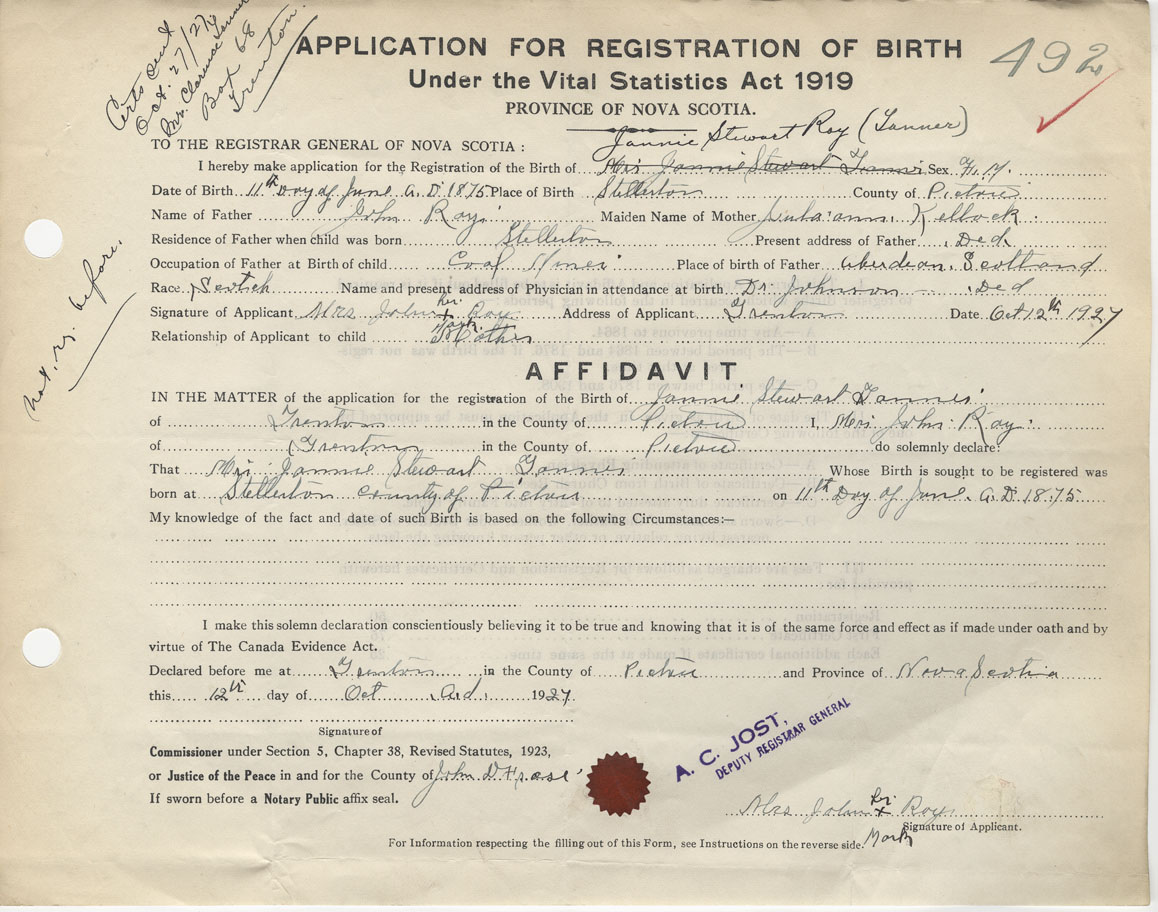 Certs sent
Oct. 27/27
Mr. Clarence Tanner
Box 68
Trenton.
APPLICATION FOR REGISTRATION OF BIRTH
492
Under the Vital Statistics Act 1919
PROVINCE OF NOVA SCOTIA.
Jannie Stewart Roy (Tanner)
TO THE REGISTRAR GENERAL OF NOVA SCOTIA :
I hereby make application for the Registration of the Birth of Mrs Jannie Stewart Sex F.
Date of Birth 11th Day of June A.D. 1875 Place of Birth Stellerton County of Pictou
Name of Father John Roy Maiden Name of Mother Ann
Residence of Father when child was born Stellerton Present address of Father Ded
Occupation of Father at Birth of child Coal Miner Place of birth of Father Aberdean. Scotland
Race Scotch Name and present address of Physician in attendance at birth Dr. Johnson Ded
Signature of Applicant Mrs John her x mark Roy Address of Applicant Trenton Date Oct 12th 1927
Relationship of Applicant to child Mother
not reg. before.
AFFIDAVIT
IN THE MATTER of the application for the registration of the Birth of Jannie Stewart
of Trenton in the County of Pictou I, Mrs John Roy
of Trenton in the County of Pictou do solemnly declare:
That Mrs Jannie Stewart Whose Birth is sought to be registered was
born at Stellerton county of Pictou on 11th Day of June. A.D. 1875
My knowledge of the fact and date of such Birth is based on the following Circumstances:—
I make this solemn declaration conscientiously believing it to be true and knowing that it is of the same force and effect as if made under oath and by
virtue of The Canada Evidence Act.
Declared before me at Trenton in the County of Pictou and Province of Nova Scotia
this 12th day of Oct A.d. 1927
Signature of
Commissioner under Section 5, Chapter 38, Revised Statutes, 1923,
or Justice of the Peace in and for the County of John D Fraser
If sworn before a Notary Public affix seal.
A. C. JOST,
DEPUTY REGISTRAR GENERAL
Mrs John her x Mark Roy
Signature of Applicant.
For Information respecting the filling out of this Form, see Instructions on the reverse side.